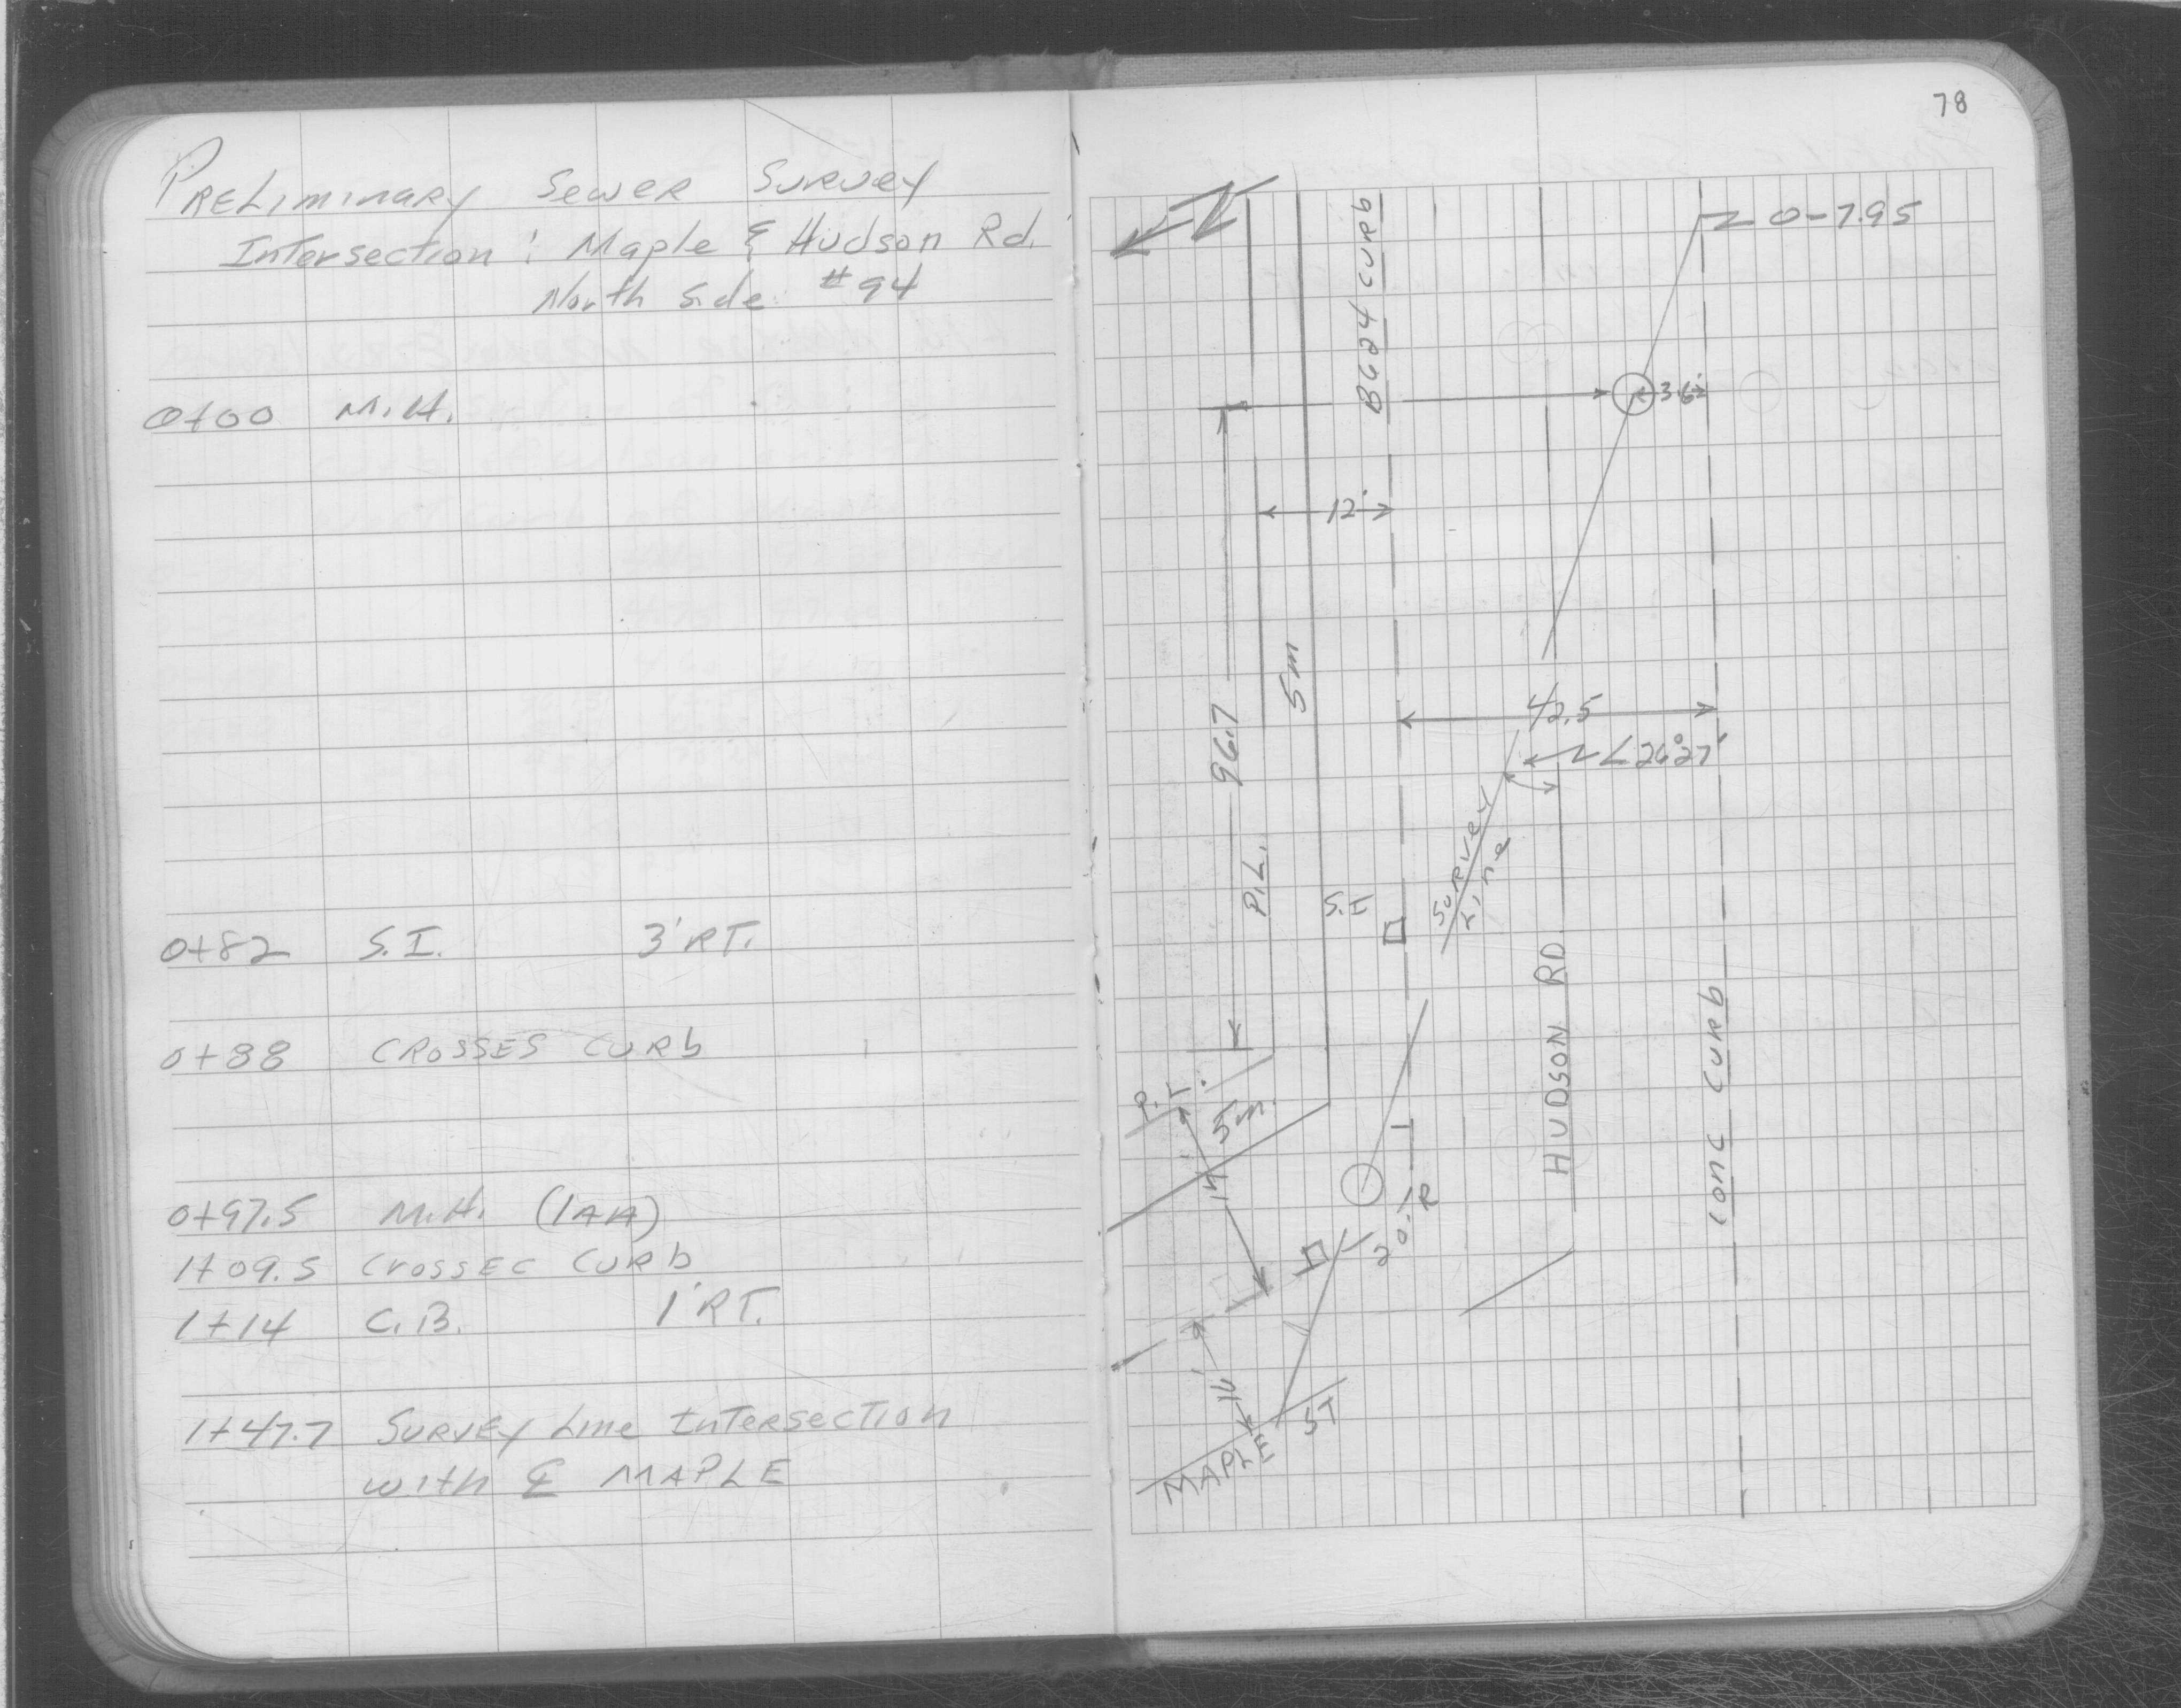 PRELIMINARY SEWER SURVEY
INTERSECTION: Maple & Hudson Rd.
North Side #94
0+00 M.H.
0+82 S.I. 3' RT.
0+88 CROSSES CURB
0+97.5 M.H. (1AA)
1+09.5 CROSSEC CURB
1+14 C.B. 1' RT.
1+47.7 SURVEY LINE INTERSECTION
WITH ℄ MAPLE
78
N
B624 CURB
0-7.95
3.6'
12'
96.7
5m
42.5
∠26°27'
SURVEY
LINE
P.L.
S.I
HUDSON RD
CONC CURB
P.L.
5m.
20.'R
16'
MAPLE ST